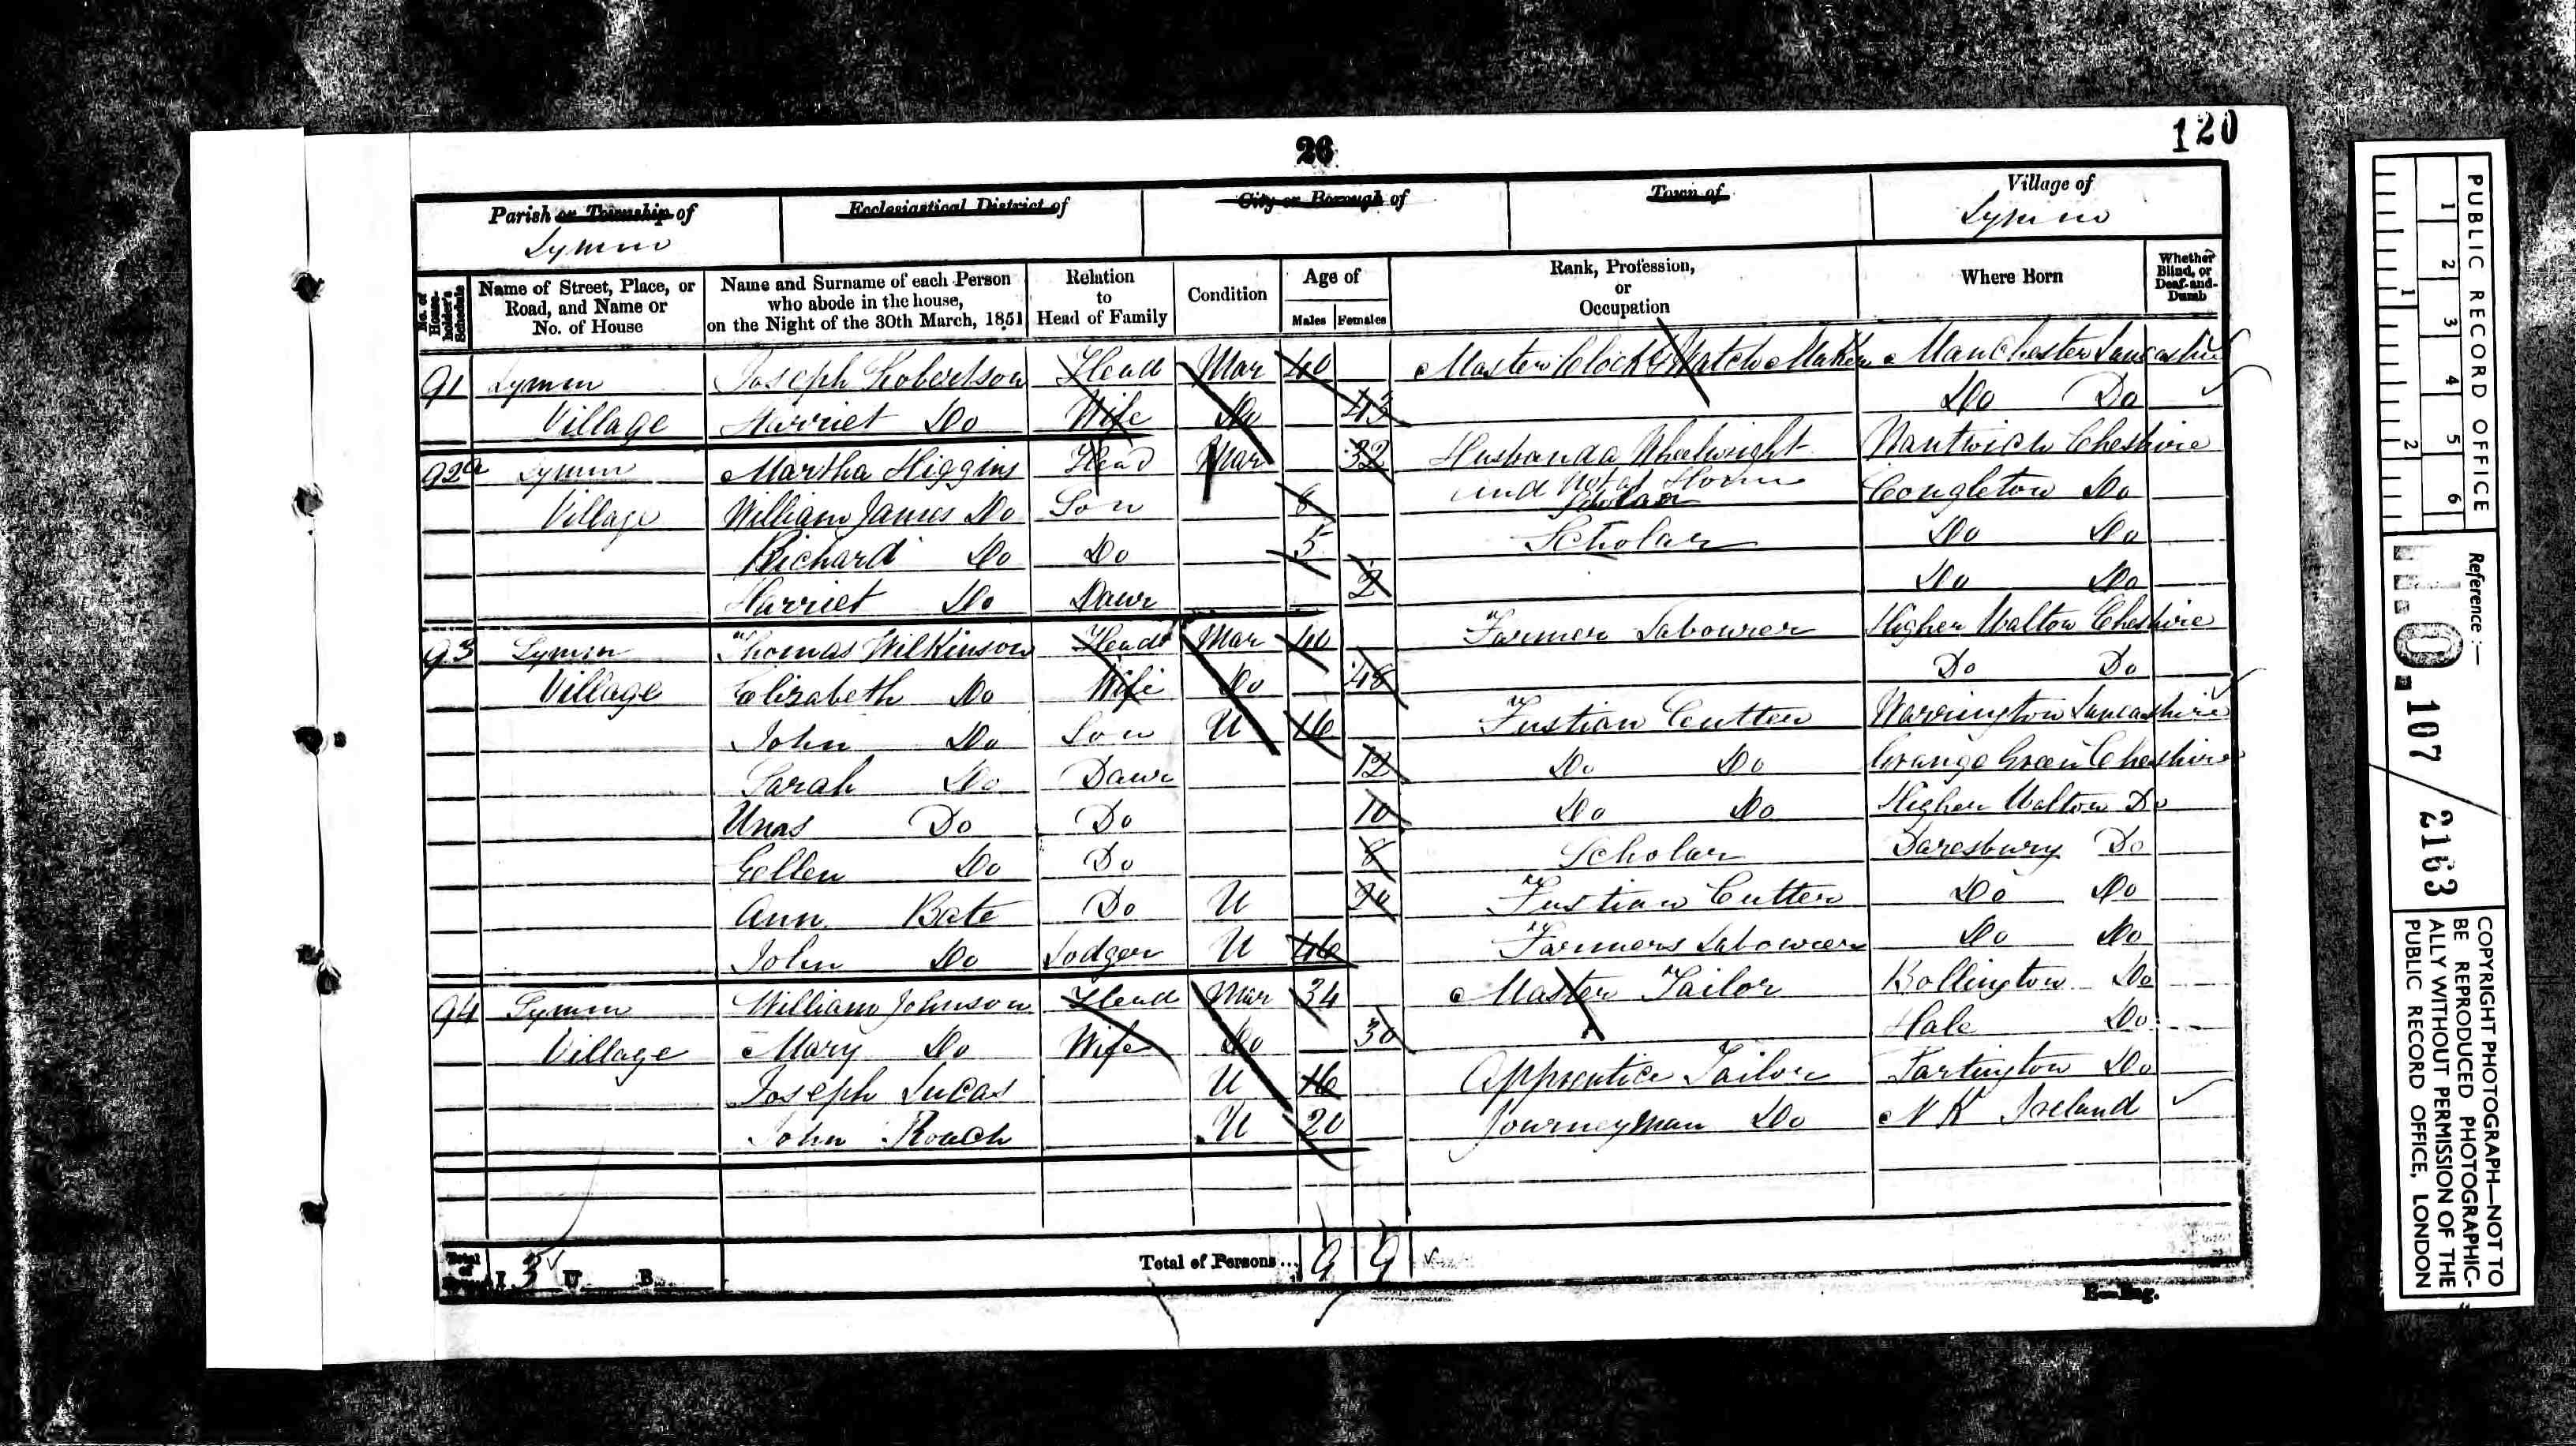 26
120
Parish or Township of
Lymm
Ecclesiastical District of
City or Borough of
Town of
Village of
Lymm
No. of House-holder's Schedule
Name of Street, Place, or Road, and Name or No. of House
Name and Surname of each Person who abode in the house, on the Night of the 30th March, 1851
Relation to Head of Family
Condition
Age of
Males Females
Rank, Profession, or Occupation
Where Born
Whether Blind, or Deaf-and-Dumb
91 Lymm Joseph Robertson Head Mar 40 Master Clock & Watch Maker Manchester Lancashire
Village Harriet Do Wife Do 43 Do Do
92a Lymm Martha Higgins Head Mar 32 Husband a Wheelwright Nantwich Cheshire
and Not at Home
Village William James Do Son 8 Scholar Congleton Do
Richard Do Do 5 Scholar Do Do
Harriet Do Dawr 2 Do Do
93 Lymm Thomas Wilkinson Head Mar 40 Farmer Labourer Higher Walton Cheshire
Village Elizabeth Do Wife Do 48 Do Do
John Do Son U 16 Fustian Cutter Warrington Lancashire
Sarah Do Dawr 12 Do Do Grange Green Cheshire
Unas Do Do 10 Do Do Higher Walton Do
Gellen Do Do 8 Scholar Daresbury Do
Ann Bate Do U 20 Fustian Cutter Do Do
John Do Lodger U 46 Farmers Labourer Do Do
94 Lymm William Johnson Head Mar 34 Master Tailor Bollington Do
Village Mary Do Wife Do 30 Hale Do
Joseph Lucas U 16 Apprentice Tailor Partington Do
John Roach U 20 Journeyman Do N K Ireland
Total of I 3 U B
Total of Persons... 9 9
E—Eng.
PUBLIC RECORD OFFICE
1 2 3 4 5 6
1 2
Reference :—
H.O. 107 / 2163
COPYRIGHT PHOTOGRAPH—NOT TO
BE REPRODUCED PHOTOGRAPHIC-
ALLY WITHOUT PERMISSION OF THE
PUBLIC RECORD OFFICE, LONDON